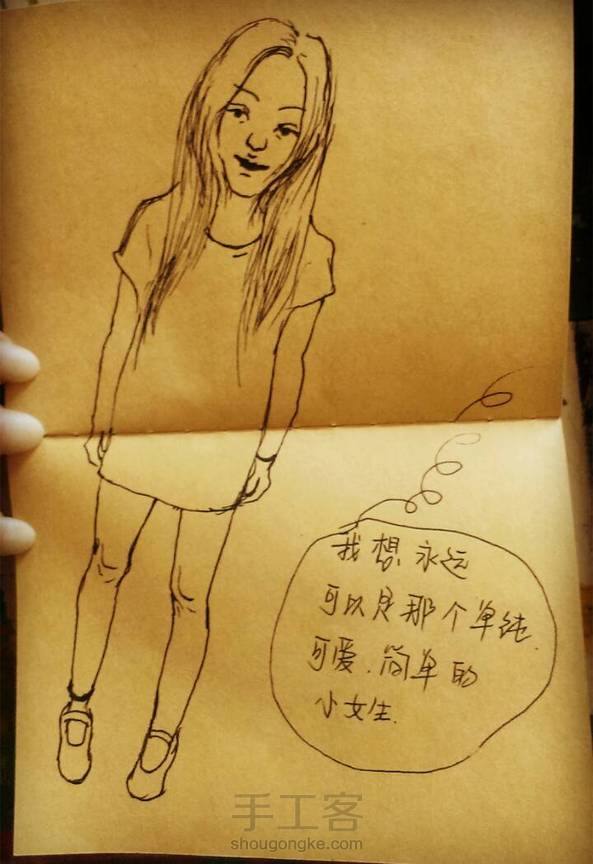 我想永远
可以是那个单纯.
可爱.简单的
小女生.
手工客
shougongke.com